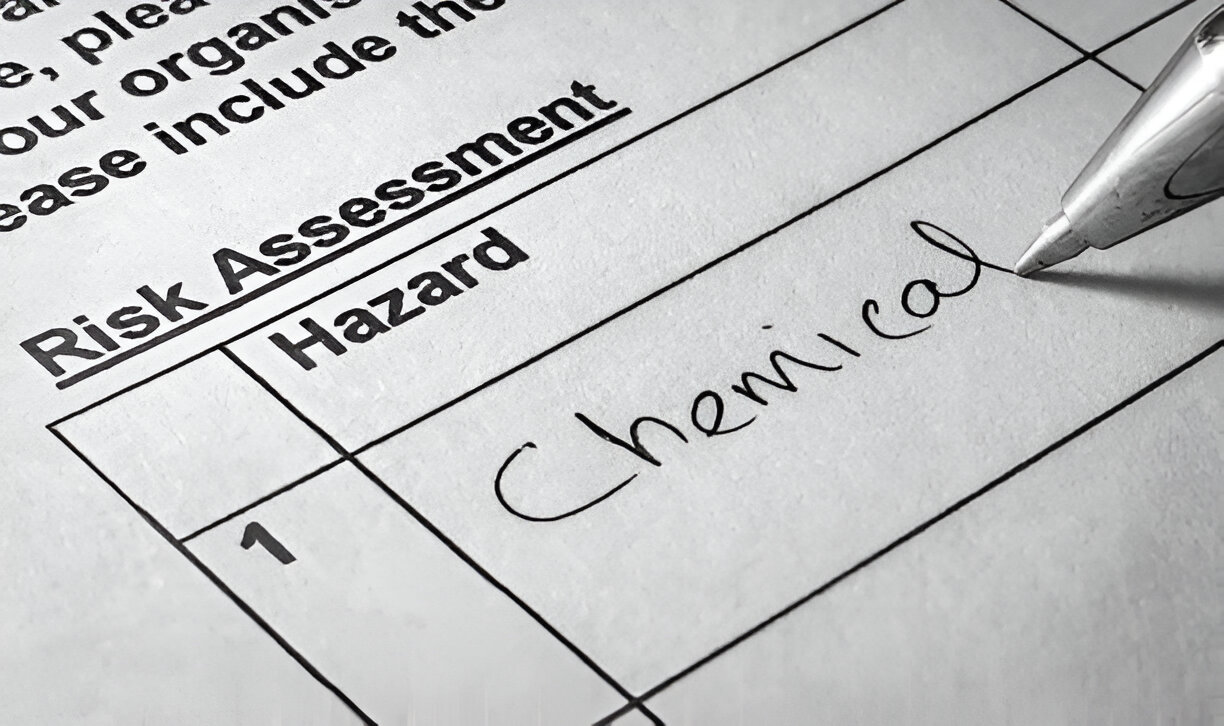 e, plea
our organis
ease include the
Risk Assessment
Hazard
1 Chemical